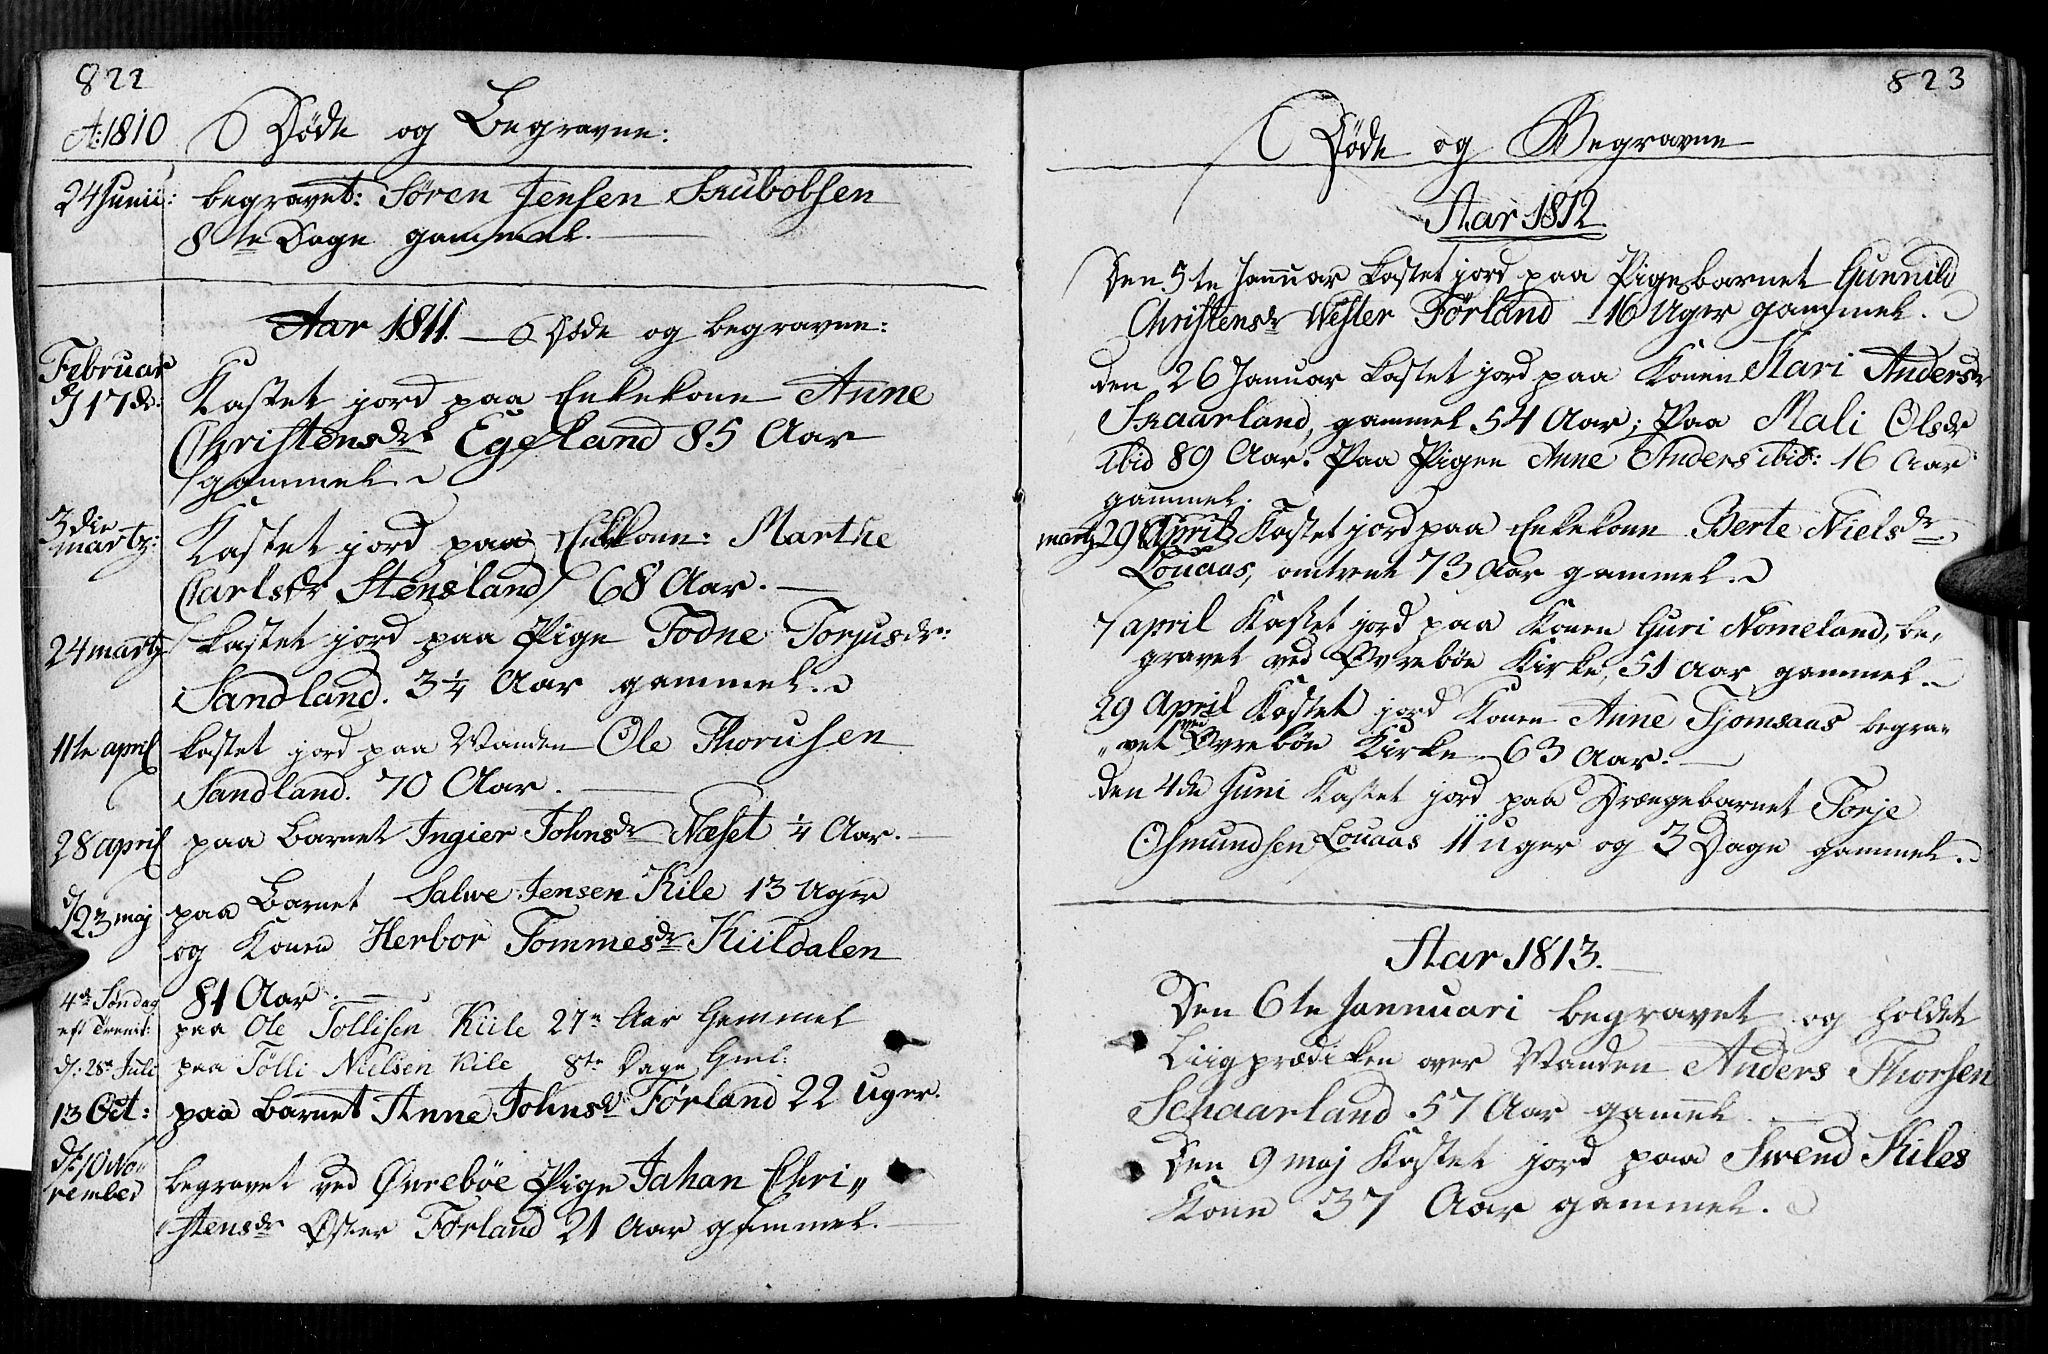 822
A: 1810 Døde og Begravne:
24 Junii: begravet: Søren Jensen
8te Dage gammel.
Aar 1811. Døde og begravne:
Februar
d 17de: Kastet jord paa Enkekone Anne
Christensdr Egeland 85 Aar
gammel.
3die
martz: Kastet jord paa Enkekone: Marthe
Carlsdr Stensland 68 Aar.
24 martz kastet jord paa Pige Todne Torjusdr:
Sandland. 3 1/4 Aar gammel.
11te april kastet jord paa Manden Ole Thorusen
Sandland. 70 Aar.
28 april paa Barnet Ingier Johnsdr Næset 1/4 Aar.
d/23 maj paa Barnet Salwe Jensen Kile 13 Uger
og Konen Herbor Tommesdr Kiildalen
81 Aar.
4de Søndag
eft Trenit: paa Ole Tollisen Kiile 27 Aar Gemmel
d: 28de Juli paa Tølli Nielsen Kile 8te Dage Gml:
13 Oct: paa barnet Anne Johnsdr Førland 22 Uger.
d: 10 No-
vember begravet ved Øvrebøe Pige Jahan Chri„
stensdr Øster Førland 21 Aar gammel.
823
Døde og Begravne
Aar 1812.
Den 5te Januar kastet jord paa Pigebarnet Gunnild
Christensdr Wester Førland 16 Uger gammel.
den 26 Januar kastet jord paa Konen Kari Andersdr
Skaarland, gammel 54 Aar; Paa Mali Olsdr
ibid 89 Aar. Paa Pigen Anne Anders ibid: 16 Aar
gammel.
martz 29 April Kastet jord paa Enkekone Berte Nielsdr
Louaas, omtrent 73 Aar gammel.
7 april Kastet jord paa Konen Guri Nomeland, be„
gravet ved Øvrebøe Kirke, 51 Aar gammel.
29 April Kastet jord Konen Anne Tjomsaas begra„
„vet ved Øvrebøe Kirke 63 Aar.
den 4de Juni Kastet jord paa Drængebarnet Torje
Osmundsen Louaas 11 uger og 3 Dage gammel.
Aar 1813.
Den 6te Jannuari begravet og holdet
Liigprædiken over Manden Anders Thorsen
Schaarland 57 Aar gamel.
Den 9 maj Kastet jord paa Swend Kiles
Kone 37 Aar gammel.